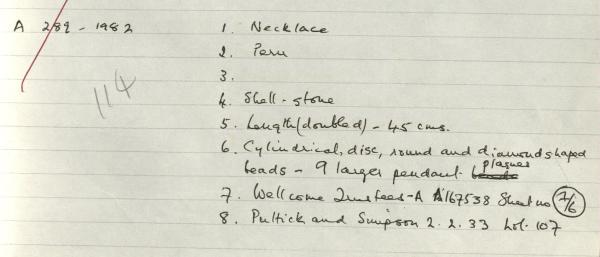 A 289 - 1982
114
1. Necklace
2. Peru
3.
4. Shell - stone
5. Length (doubled) - 45 cms.
6. Cylindrical, disc, round and diamond shaped
beads - 9 larger pendant plaques
7. Wellcome Trustees - A A167538 Sheet no 7/6
8. Puttick and Simpson 2.2.33 Lot. 107